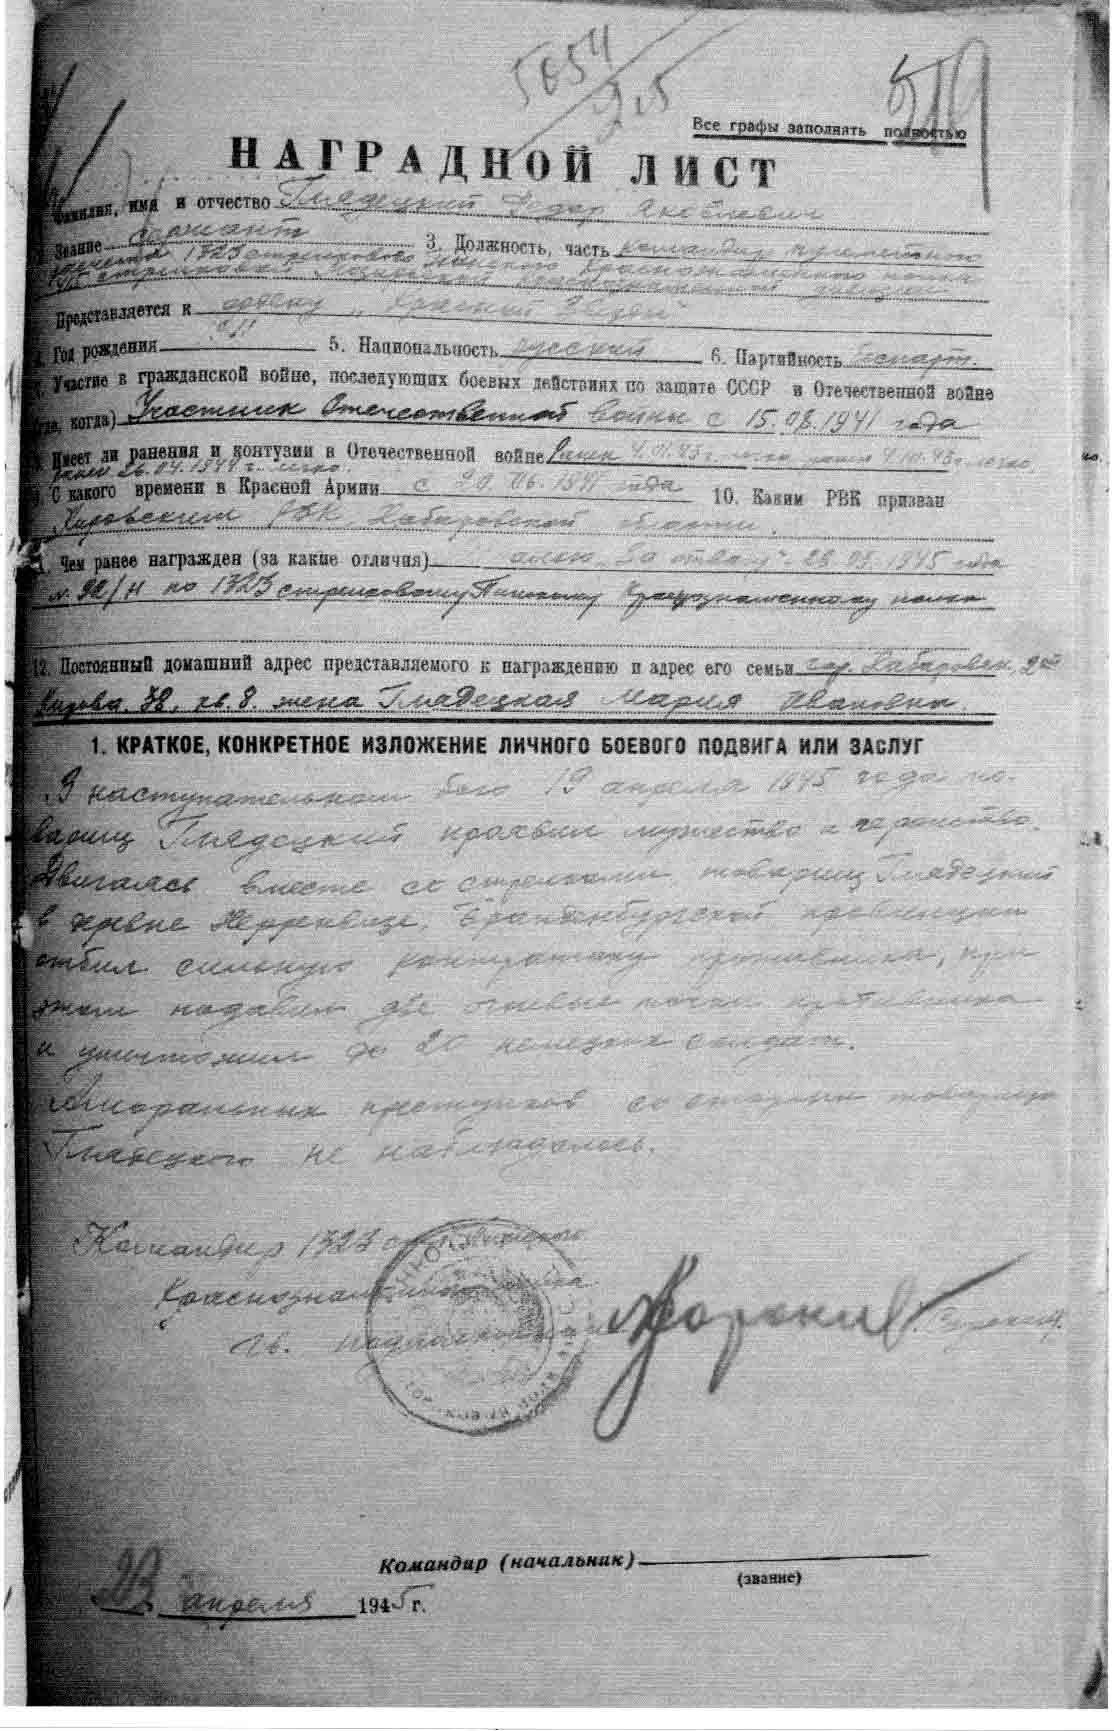 5054
25
519
Все графы заполнять полностью
НАГРАДНОЙ ЛИСТ
Фамилия, имя и отчество Глядецкий Федор Яковлевич
Звание сержант 3. Должность, часть командир пулеметного
1323 стрелкового Краснознаменного полка
стрелковой дивизии
Представляется к ордену „Красная Звезда"
Год рождения 5. Национальность русский 6. Партийность беспарт.
Участие в гражданской войне, последующих боевых действиях по защите СССР и Отечественной войне
(где, когда) Участник Отечественной войны с 15.08.1941 года
Имеет ли ранения и контузии в Отечественной войне Ранен легко, ранен легко,
ранен 26.04.1944 г. легко.
9. С какого времени в Красной Армии с 20.06.1941 года 10. Каким РВК призван
Кировским РВК Хабаровской области.
11. Чем ранее награжден (за какие отличия) „За отвагу" 1945 года
1323 стрелковому Пинскому Краснознаменному полку
12. Постоянный домашний адрес представляемого к награждению и адрес его семьи гор. Хабаровск,
Кирова. 38, кв. 8. жена Глядецкая Мария Ивановна
1. КРАТКОЕ, КОНКРЕТНОЕ ИЗЛОЖЕНИЕ ЛИЧНОГО БОЕВОГО ПОДВИГА ИЛИ ЗАСЛУГ
В наступательном бою 19 апреля 1945 года то-
варищ Глядецкий проявил мужество и геройство.
Двигаясь вместе со стрелками, товарищ Глядецкий
в деревне Бранденбургской провинции
отбил сильную контратаку противника, при
этом подавил две огневые точки противника
и уничтожил до 20 немецких солдат.
Аморальных проступков со стороны товарища
Глядецкого не наблюдалось.
Командир 1323 стр. Пинского
Краснознаменного полка
гв. подполковник
Командир (начальник)
(звание)
23 апреля 1945 г.